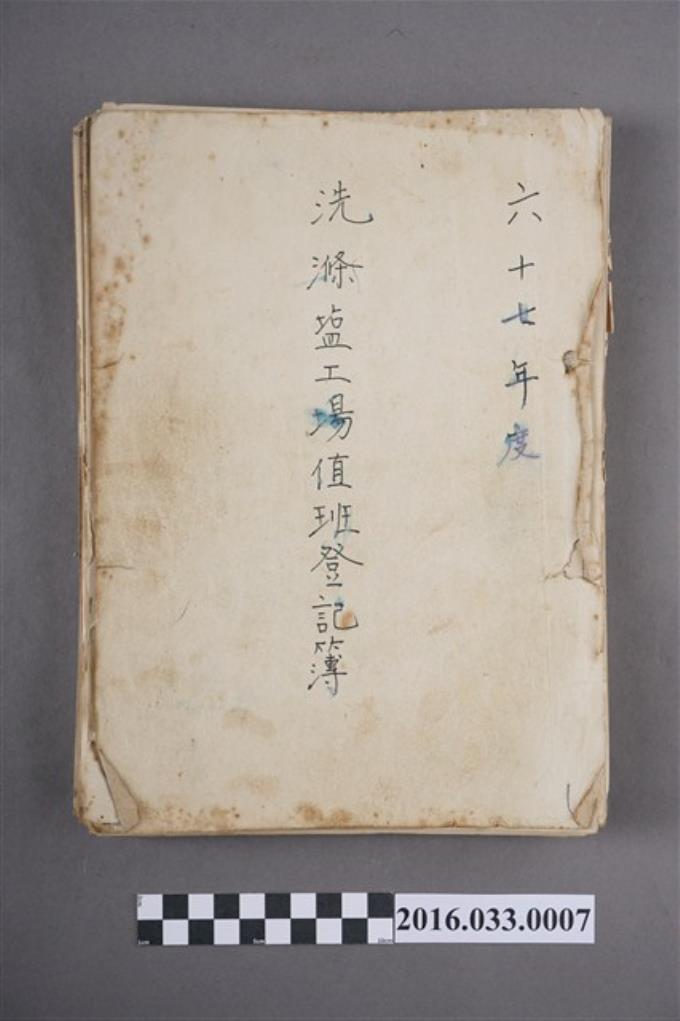 六十七年度
洗滌塩工場值班登記簿
2016.033.0007